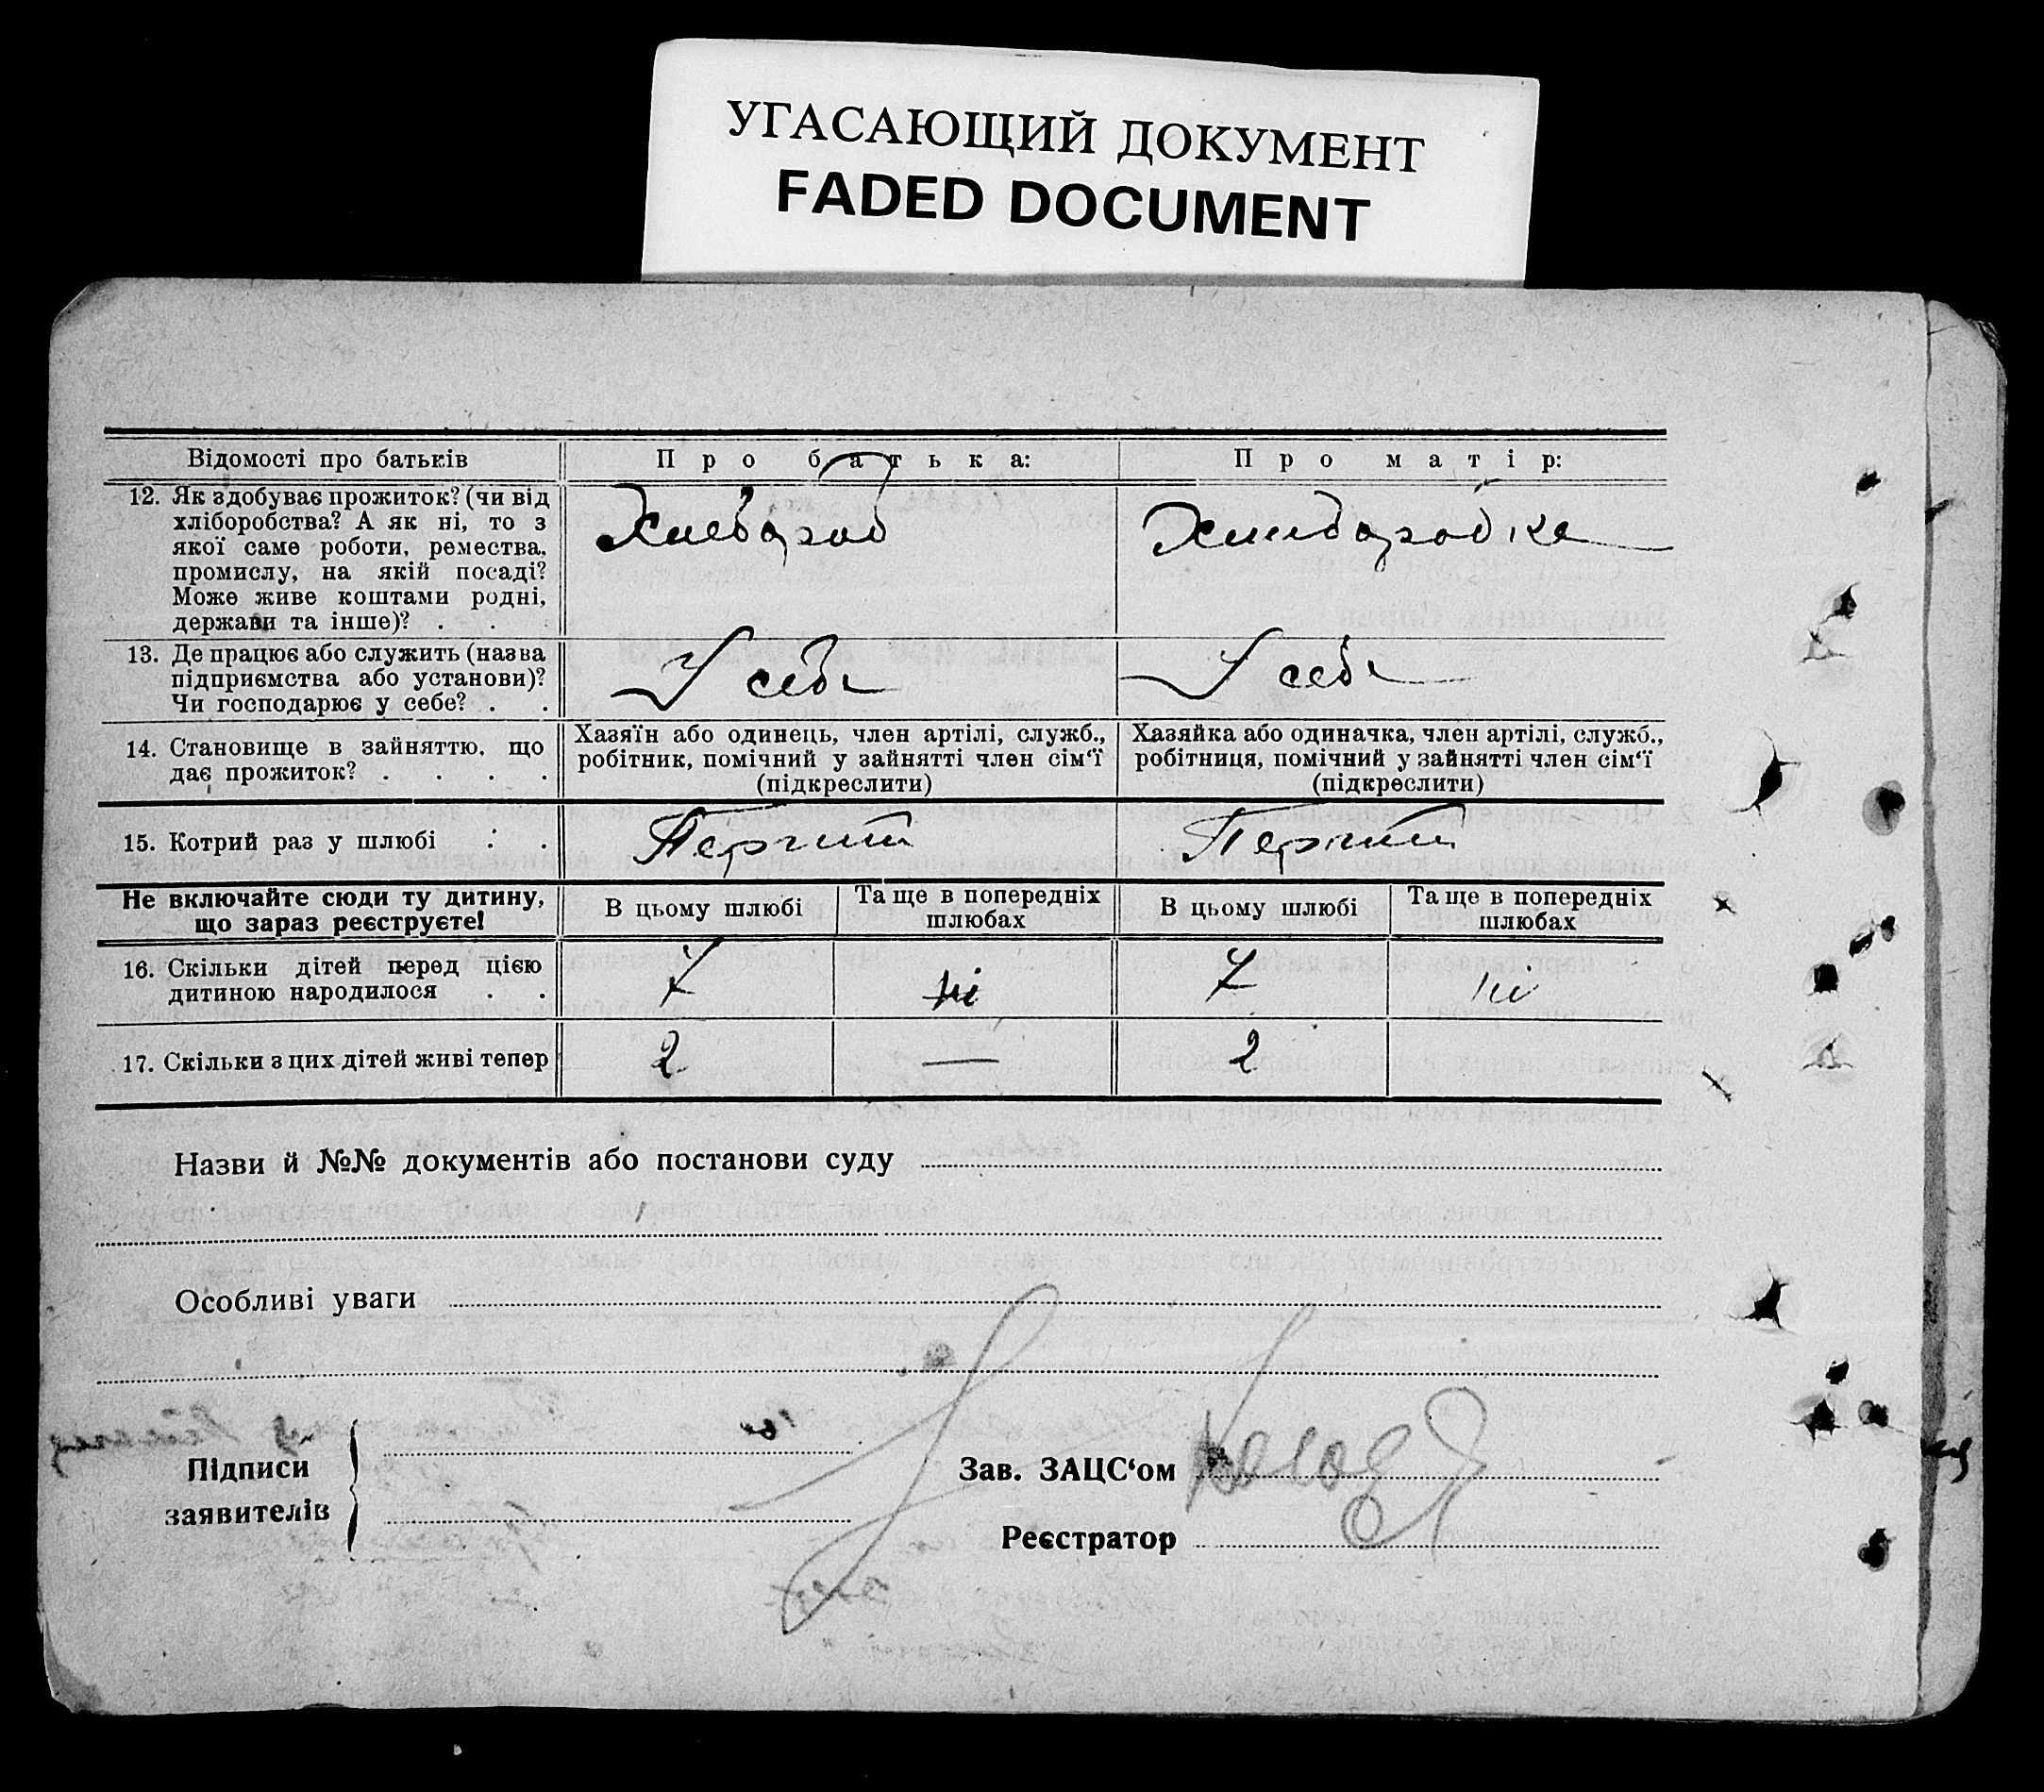 УГАСАЮЩИЙ ДОКУМЕНТ
FADED DOCUMENT
Відомості про батьків
Про батька:
Про матір:
12. Як здобуває прожиток? (чи від
хліборобства? А як ні, то з
якої саме роботи, ремества,
промислу, на якій посаді?
Може живе коштами родні,
держави та інше)? . .
Хлебороб
Хлиборобка
13. Де працює або служить (назва
підприємства або установи)?
Чи господарює у себе? . .
У себе
У себе
14. Становище в зайняттю, що
дає прожиток? . . . .
Хазяїн або одинець, член артілі, служб.,
робітник, помічний у зайнятті член сім‘ї
(підкреслити)
Хазяйка або одиначка, член артілі, служб.,
робітниця, помічний у зайнятті член сім‘ї
(підкреслити)
15. Котрий раз у шлюбі . .
Перший
Перший
Не включайте сюди ту дитину,
що зараз реєструєте!
В цьому шлюбі
Та ще в попередніх
шлюбах
В цьому шлюбі
Та ще в попередніх
шлюбах
16. Скільки дітей перед цією
дитиною народилося . .
7
ні
7
ні
17. Скільки з цих дітей живі тепер
2
—
2
Назви й №№ документів або постанови суду
Особливі уваги
Підписи
заявителів
Зав. ЗАЦС‘ом
Реєстратор